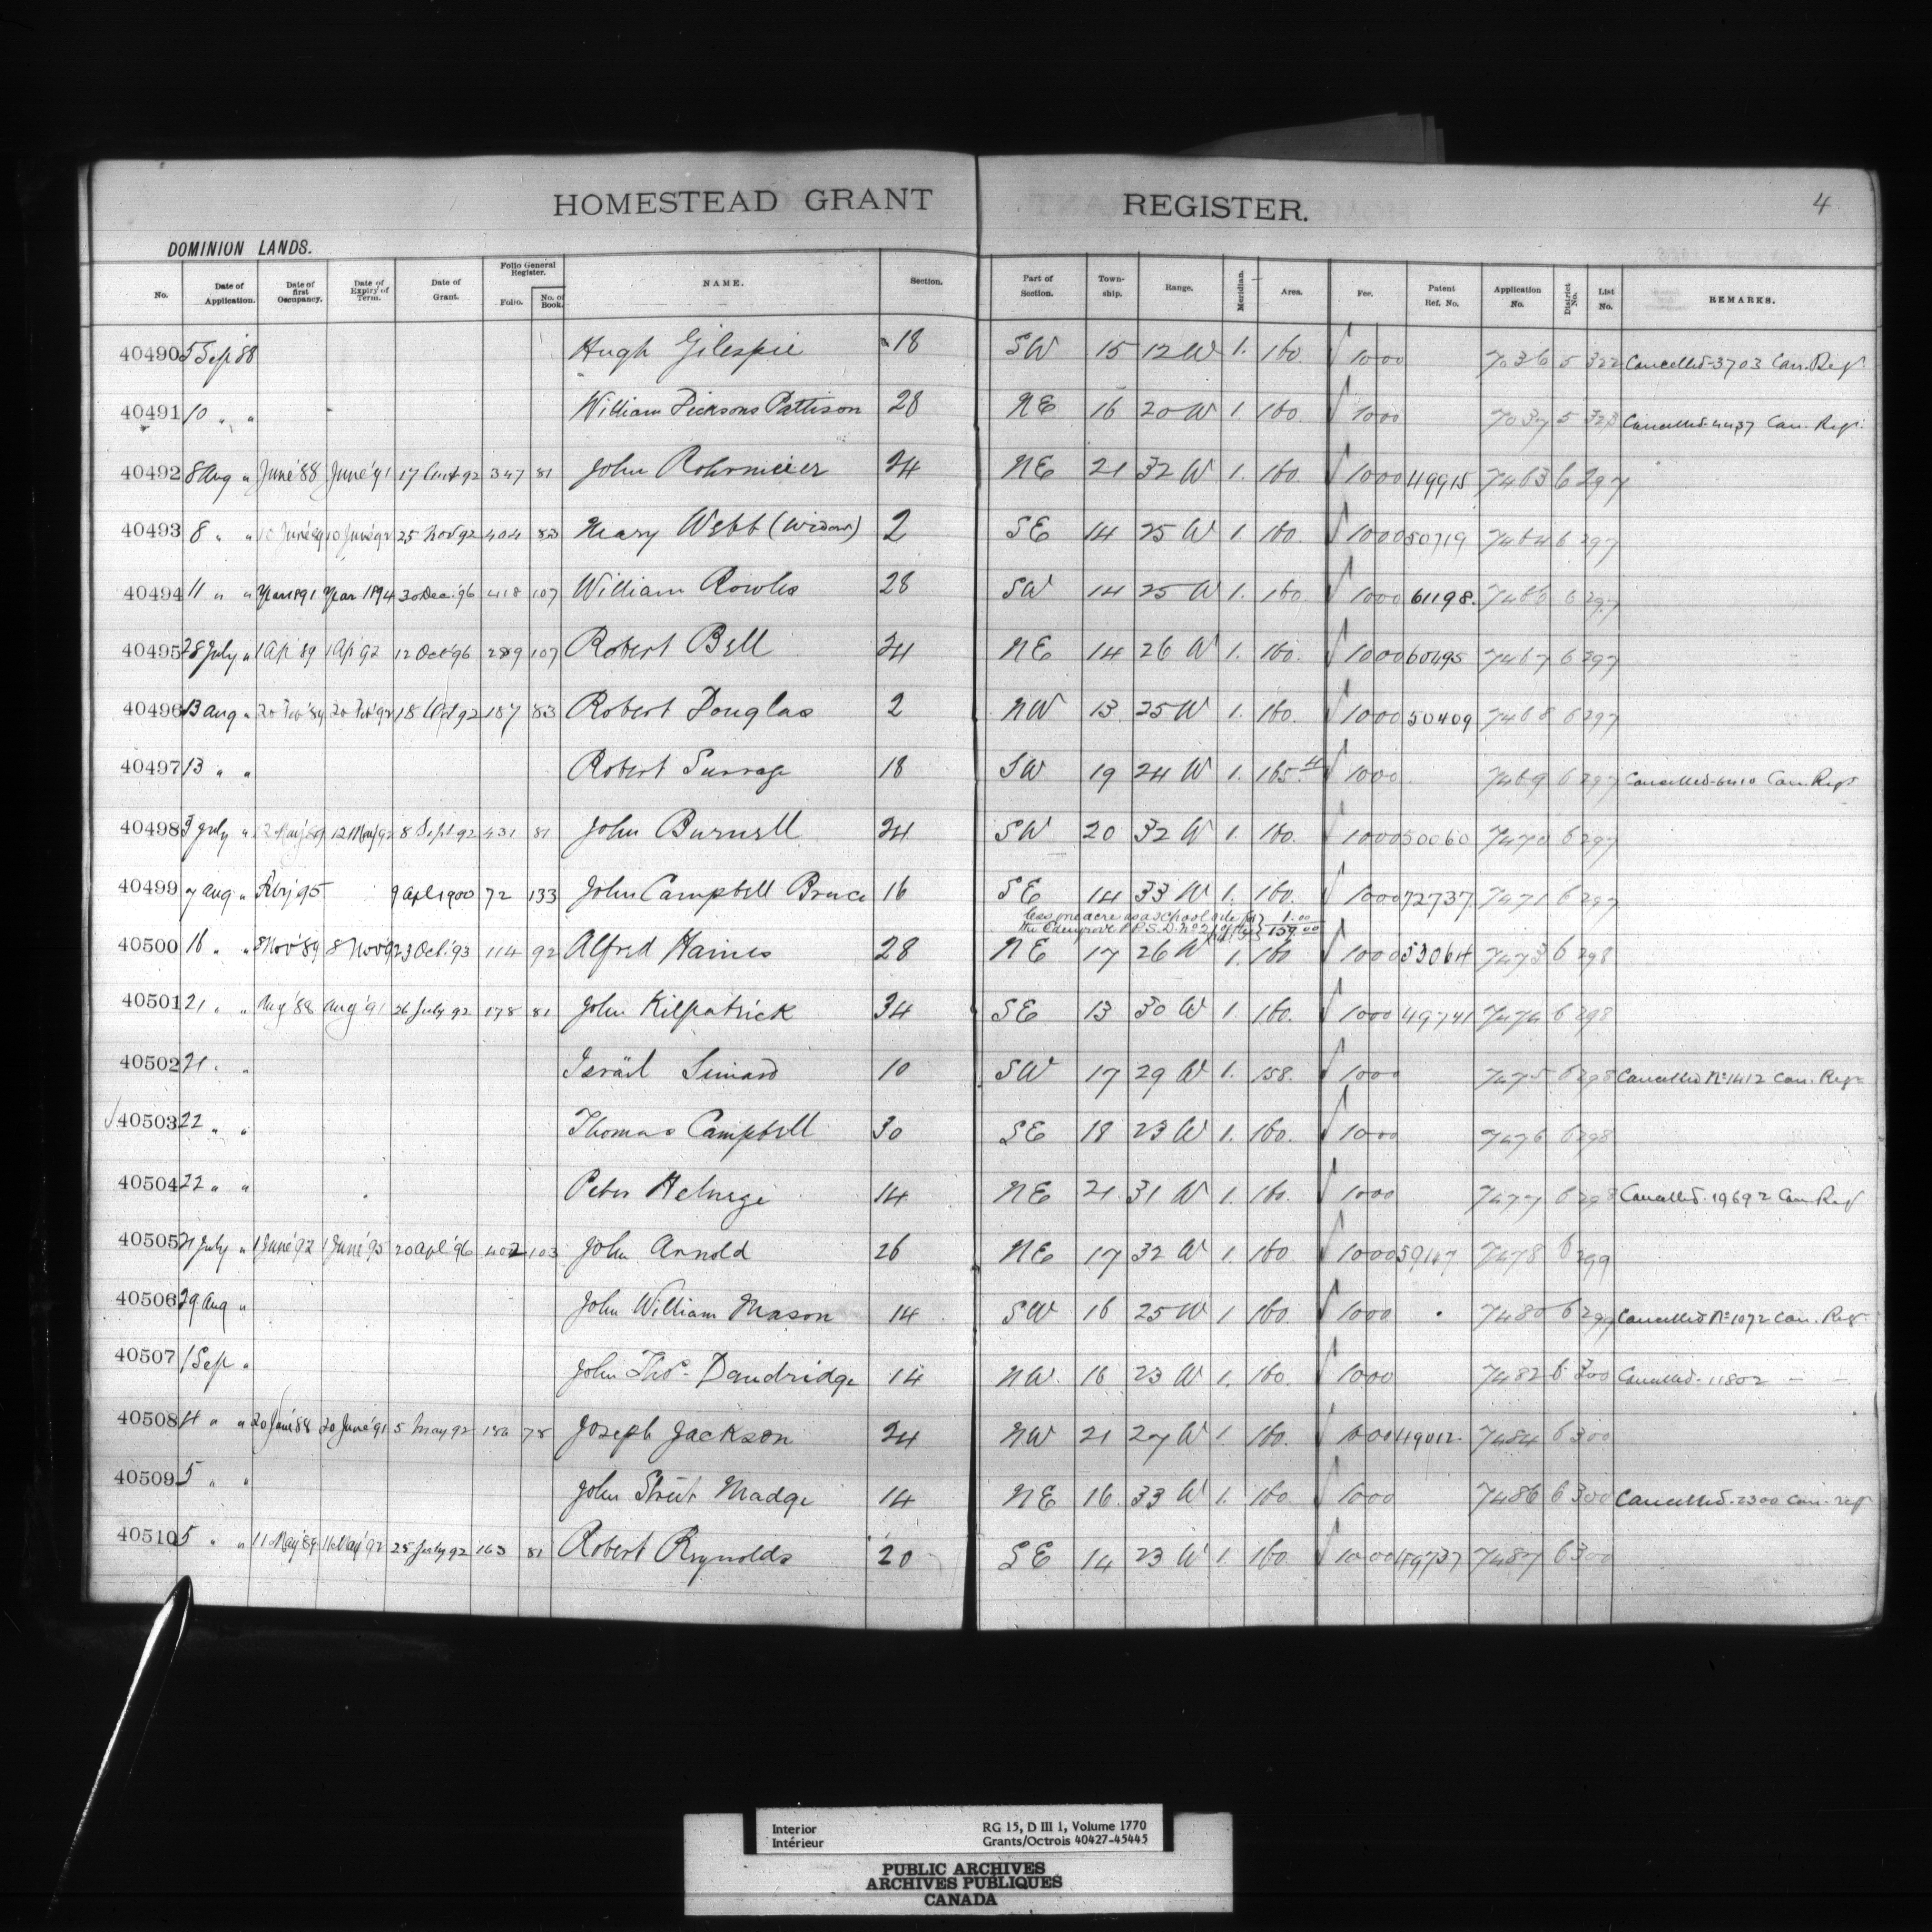 HOMESTEAD GRANT REGISTER. 4
DOMINION LANDS.
No. Date of Application. Date of first Occupancy. Date of Expiry of Term. Date of Grant. Folio General Register. Folio. No. of Book. NAME. Section. Part of Section. Township. Range. Meridian. Area. Fee. Patent Ref. No. Application No. District No. List No. REMARKS.
40490 5 Sep '88 Hugh Gilespie 18 SW 15 12 W 1. 160. 1000 7036 5 322 Cancelled 3703 Can. Reg.
40491 10 " " William Pattison 28 NE 16 20 W 1. 160. 1000 7037 5 323 Cancelled 4437 Can. Reg.
40492 8 Aug " June '88 June '91 17 92 347 81 John Rohrmeier 24 NE 21 32 W 1. 160. 1000 49915 7463 6 297
40493 8 " " 10 June '89 10 June '92 25 Nov 92 404 83 Mary Webb (Widow) 2 SE 14 25 W 1. 160. 1000 50719 7464 6 297
40494 11 " " Year 1891 Year 1894 30 Dec. '96 418 107 William Rowles 28 SW 14 25 W 1. 160 1000 61198. 7466 6 297
40495 28 July " 1 Ap '89 1 Ap '92 12 Oct '96 289 107 Robert Bell 24 NE 14 26 W 1. 160. 1000 60495 7467 6 297
40496 13 Aug " 20 Feb '89 20 Feb '92 18 Oct 92 187 83 Robert Douglas 2 NW 13 25 W 1. 160. 1000 50409 7468 6 297
40497 13 " " Robert 18 SW 19 24 W 1. 165. 1000 7469 6 297 Cancelled Can. Reg.
40498 3 July " 12 May '89 12 May 92 8 Sept 92 431 81 John Burnell 24 SW 20 32 W 1. 160. 1000 50060 7470 6 297
40499 7 Aug " 95 9 Apl 1900 72 133 John Campbell Bruce 16 SE 14 33 W 1. 160. 1000 72737 7471 6 297
less one acre as a school site for 1.00
the P.P.S.D. No 159.00
40500 16 " " 8 Nov '89 8 Nov 92 3 Oct. '93 114 92 Alfred Haines 28 NE 17 26 W 1. 160 1000 53064 7473 6 298
40501 21 " " Aug '88 Aug '91 26 July 92 178 81 John Kilpatrick 34 SE 13 30 W 1. 160. 1000 49741 7474 6 298
40502 21 " " Israël Simard 10 SW 17 29 W 1. 158. 1000 7475 6 298 Cancelled No 1412 Can. Reg.
40503 22 " " Thomas Campbell 30 SE 18 23 W 1. 160. 1000 7476 6 298
40504 22 " " Peter 14 NE 21 31 W 1. 160. 1000 7477 6 298 Cancelled. 19692 Can Reg
40505 21 July " 1 June '92 1 June '95 20 Apl '96 402 103 John Arnold 26 NE 17 32 W 1. 160. 1000 59147 7478 6 299
40506 29 Aug " John William Mason 14 SW 16 25 W 1 160. 1000 7480 6 299 Cancelled No 1072 Can. Reg.
40507 1 Sep " John Thos. Dandridge 14 NW 16 23 W 1. 160. 1000 7482 6 300 Cancelled. 11802 — —
40508 4 " " 20 June '88 20 June '91 5 May 92 78 Joseph Jackson 24 NW 21 27 W 1. 160. 1000 49012 7484 6 300
40509 5 " " John Street Madge 14 NE 16 33 W 1. 160 1000 7486 6 300 Cancelled. 2300 Can. reg
40510 5 " " 11 May '89 11 May '92 25 July 92 163 81 Robert Reynolds 20 SE 14 23 W 1. 160. 1000 49737 7487 6 300
Interior RG 15, D III 1, Volume 1770
Intérieur Grants/Octrois 40427-45445
PUBLIC ARCHIVES
ARCHIVES PUBLIQUES
CANADA